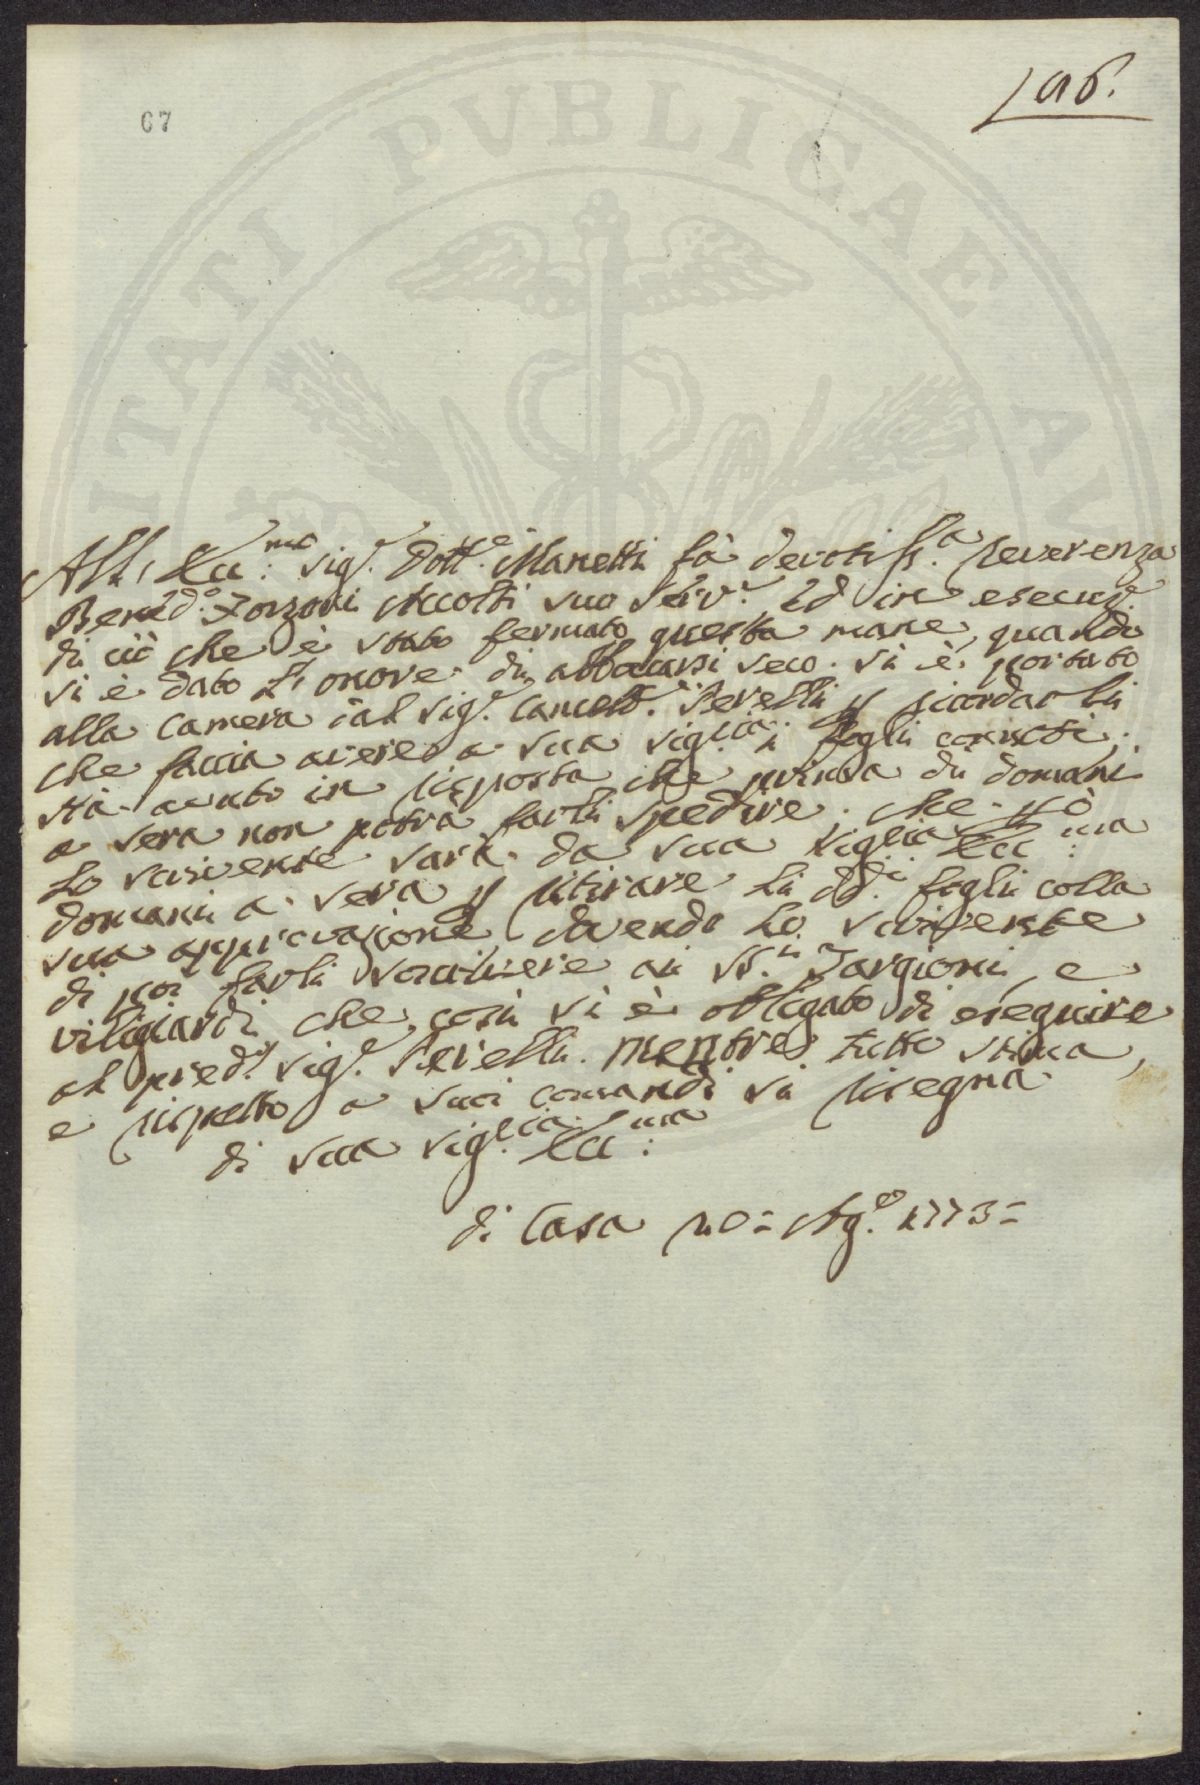 67
106.
All' Ill:mo Sig.re Dott.e Manetti fà devotiss.a reverenza
Bened.o Forzoni Accolti suo Serv.e Ed in esecuz.e
di ciò che è stato fermato questa mane, quando
si è dato L'onore di abboccarsi seco. Si è portato
alla Camera dal Sig.e Cancell.e Serelli p ricordarli
che faccia avere a Sua Sig.ria i fogli corretti;
Hà avuto in risposta che prima di domani
a sera non potrà farli spedire. che p ò
Lo scrivente sarà da Sua Sig.lia Ill:ma
domani a sera p ritirare Li dd.i fogli colla
sua approvazione, dovendo Lo scrivente
di poi farli sottoscrivere ai SS.ri Targioni, e
Viligiardi che così si è obligato di eseguire
al pred.o Sig.e Serelli. Mentre tutto stima,
e rispetto a suoi comandi si risegna
di Sua Sig.lia Ill:ma
di Casa 20= Ag.o 1773=
PVBLICAE